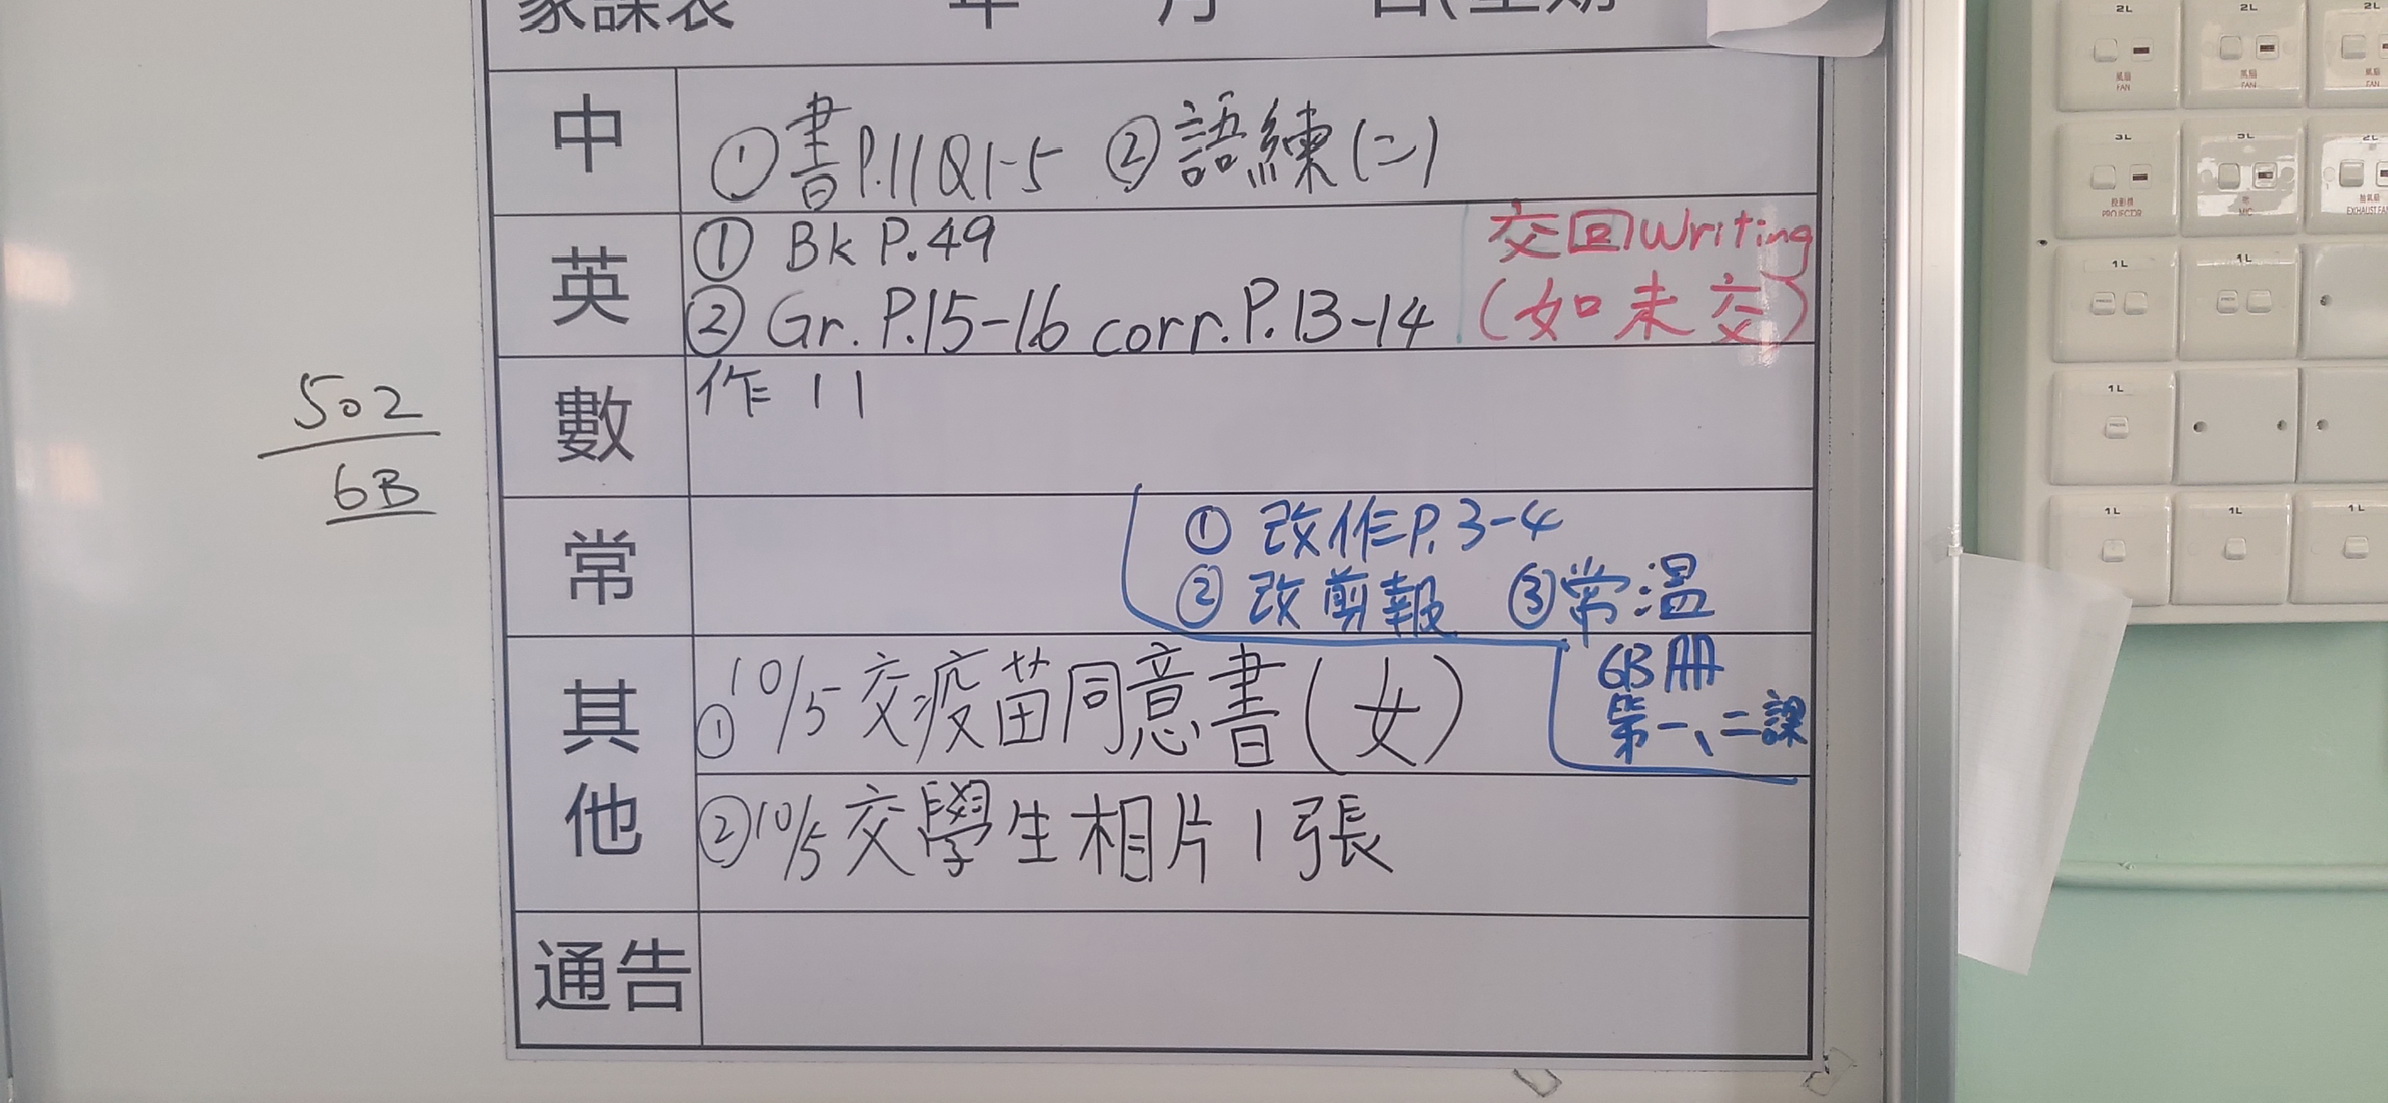 家課表 年 月 日(星期
中
①書P.11Q1-5 ②語練(二)
英
① Bk P.49
② Gr. P.15-16 corr. P.13-14
交回Writing
(如未交)
數
作 11
常
① 改作P.3-4
② 改剪報 ③常溫
6B冊
第一、二課
其他
①10/5交疫苗同意書(女)
②10/5交學生相片1張
通告
502
6B
2L 2L 2L
風扇 風扇 風扇
FAN FAN FAN
3L 3L 2L
投影機
PROJECTOR MIC EXHAUST FAN
1L 1L
1L
1L 1L 1L